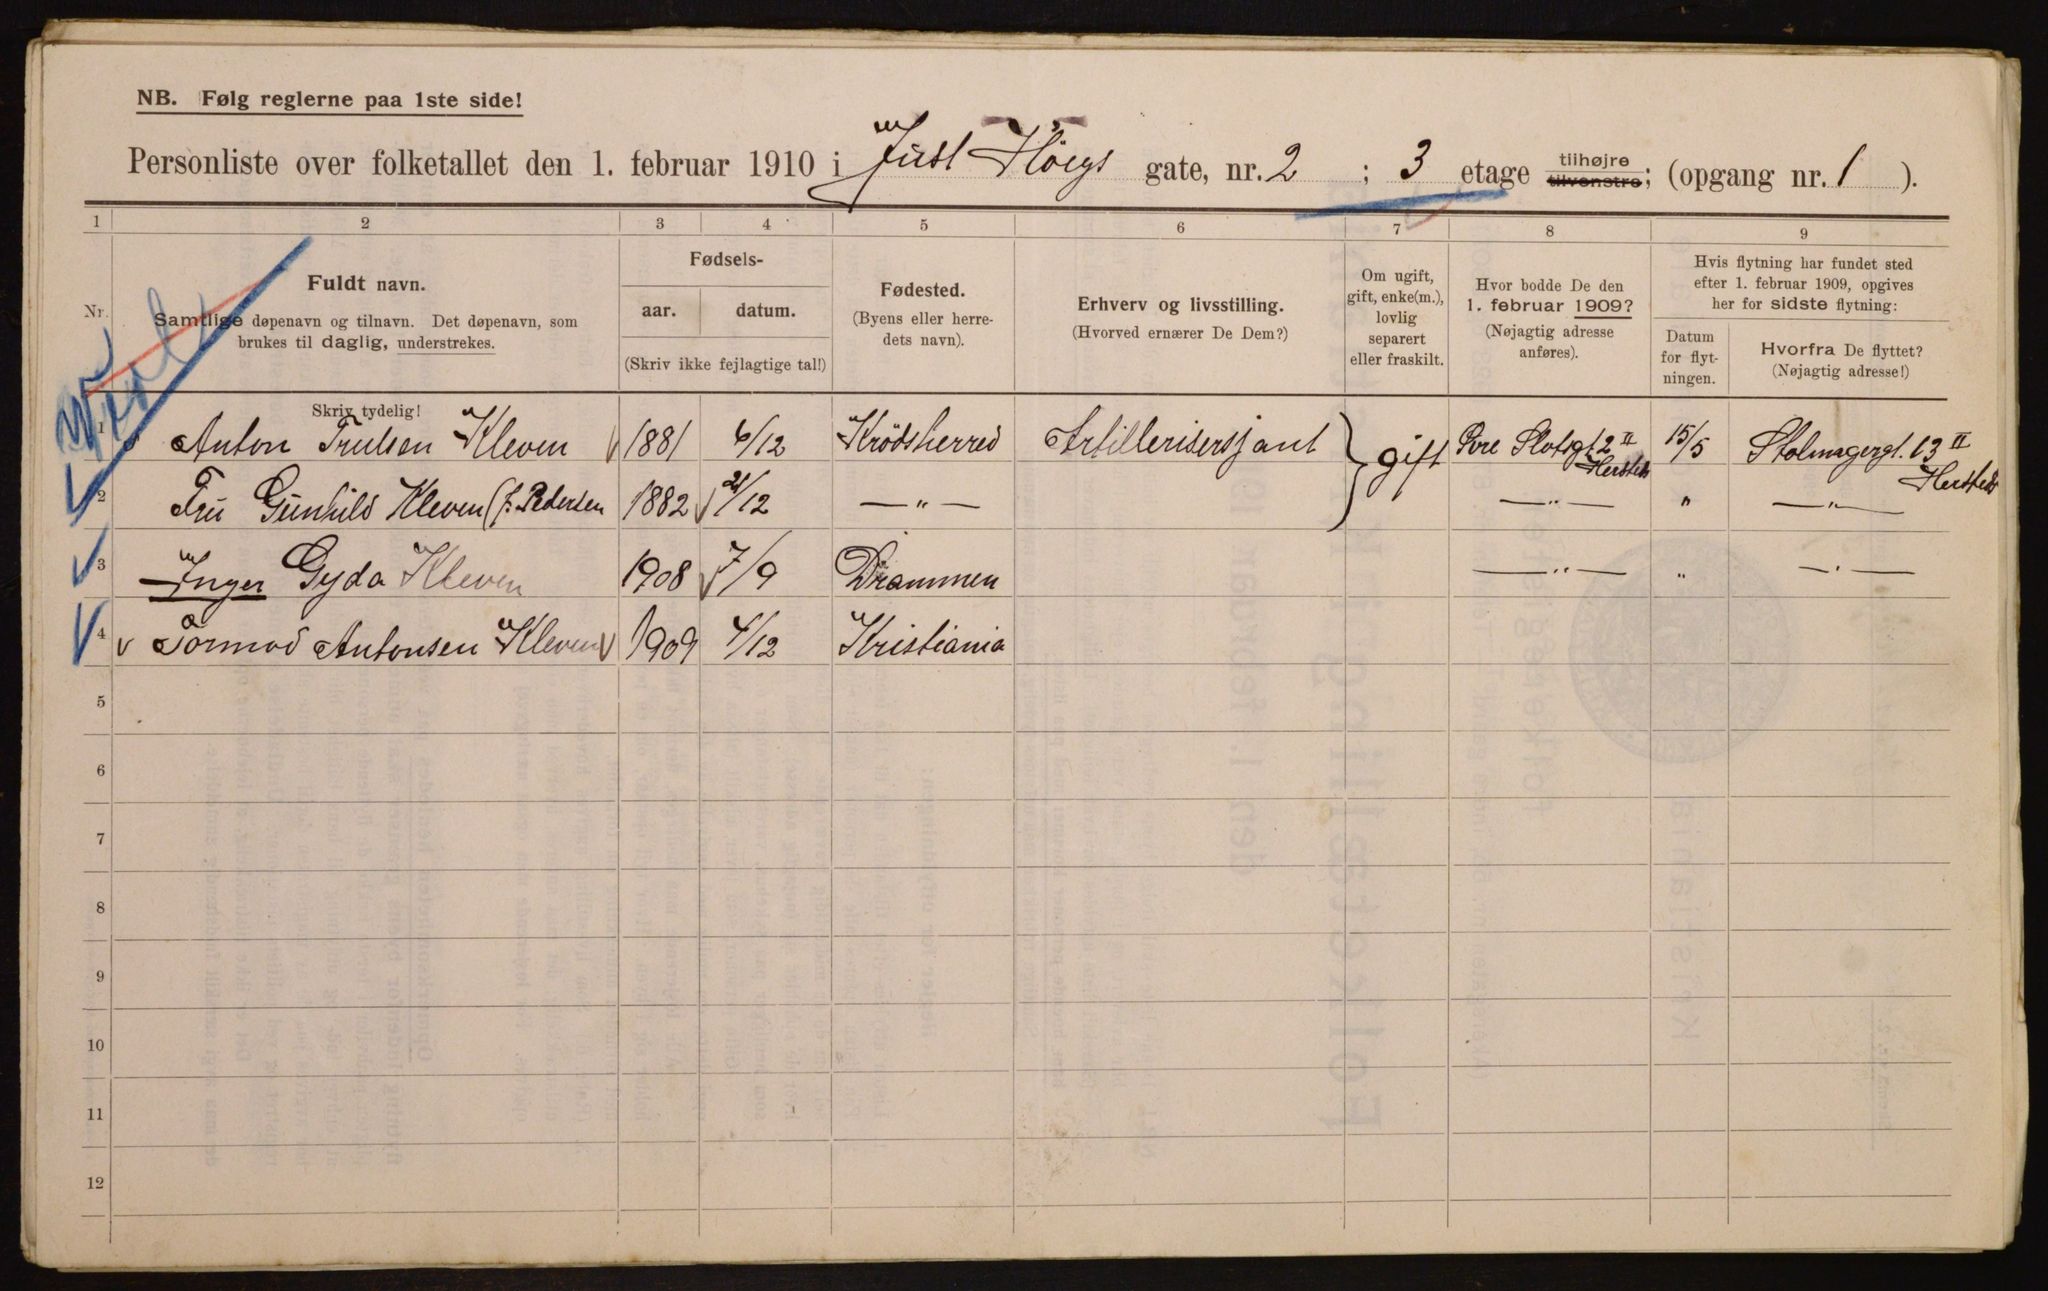 NB. Følg reglerne paa 1ste side!
Personliste over folketallet den 1. februar 1910 i Just Höegs gate, nr. 2 ; 3 etage tilhøjre tilvenstre; (opgang nr. 1 ).
1 2 3 4 5 6 7 8 9
Nr.
Fuldt navn.
Samtlige døpenavn og tilnavn. Det døpenavn, som
brukes til daglig, understrekes.
Skriv tydelig!
Fødsels-
aar. datum.
(Skriv ikke fejlagtige tal!)
Fødested.
(Byens eller herre-
dets navn).
Erhverv og livsstilling.
(Hvorved ernærer De Dem?)
Om ugift,
gift, enke(m.),
lovlig
separert
eller fraskilt.
Hvor bodde De den
1. februar 1909?
(Nøjagtig adresse
anføres).
Hvis flytning har fundet sted
efter 1. februar 1909, opgives
her for sidste flytning:
Datum
for flyt-
ningen.
Hvorfra De flyttet?
(Nøjagtig adresse!)
1 Anton Trulsen Kleven 1881 6/12 Krödsherred Artillerisersjant gift Øvre Slotsgt 2 II 15/5 Stolmagergt. 13 II
2 Fru Gunhild Kleven (f. Pedersen 1882 21/12 — " — — " — " — " —
3 Inger Gyda Kleven 1908 7/9 Drammen — " — " — " —
4 Tormod Antonsen Kleven 1909 4/12 Kristiania
5
6
7
8
9
10
11
12